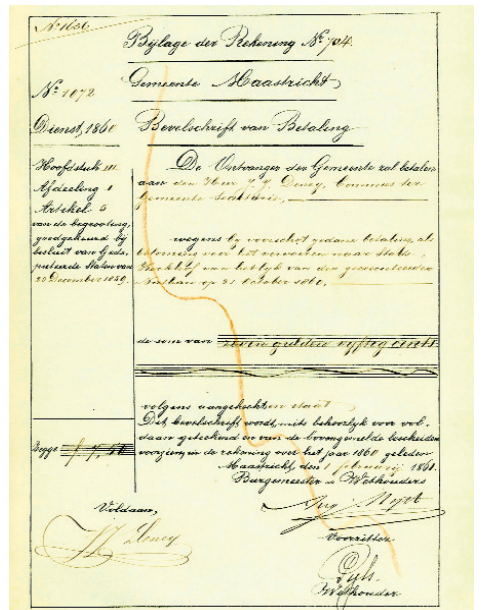 Nº 1656
Bijlage der Rekening Nº 704.
Nº 1072
Gemeente Maastricht
Dienst, 1860
Bevelschrift van Betaling
Hoofdstuk III
Afdeeling 1
Artikel 5
van de begrooting,
goedgekeurd bij
besluit van Gede-
puteerde Staten van
20 December 1859.
De Ontvanger der Gemeente zal betalen
aan den Heer J. J. Deney, Commies ter
Gemeente Secretarie,
wegens by voorschot gedane betaling, als
belooning voor het vervoeren naar
van het lyk van den
op 31 October 1860,
de som van zeven gulden vyftig cents
volgens aangehechten staat
Dit bevelschrift wordt, mits behoorlyk voor vol-
daan geteekend en van de bovengemelde bescheiden
voorzien, in de rekening over het jaar 1860 geleden
Zegge f 7,50
Maastricht, den 1 februarij 1861.
Burgemeester en Wethouders
Voldaan,
Voorzitter
Pyls.
Wethouder